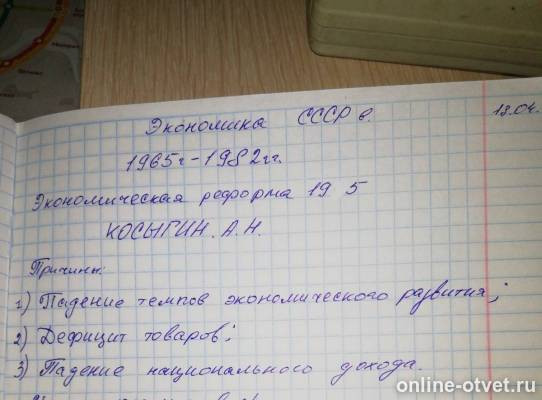 Экономика СССР в. 13.04.
1965г-1982гг.
Экономическая реформа 19 5
КОСЫГИН. А.Н.
Причины:
1) Падение темпов экономического развития;
2) Дефицит товаров;
3) Падение национального дохода.
online-otvet.ru